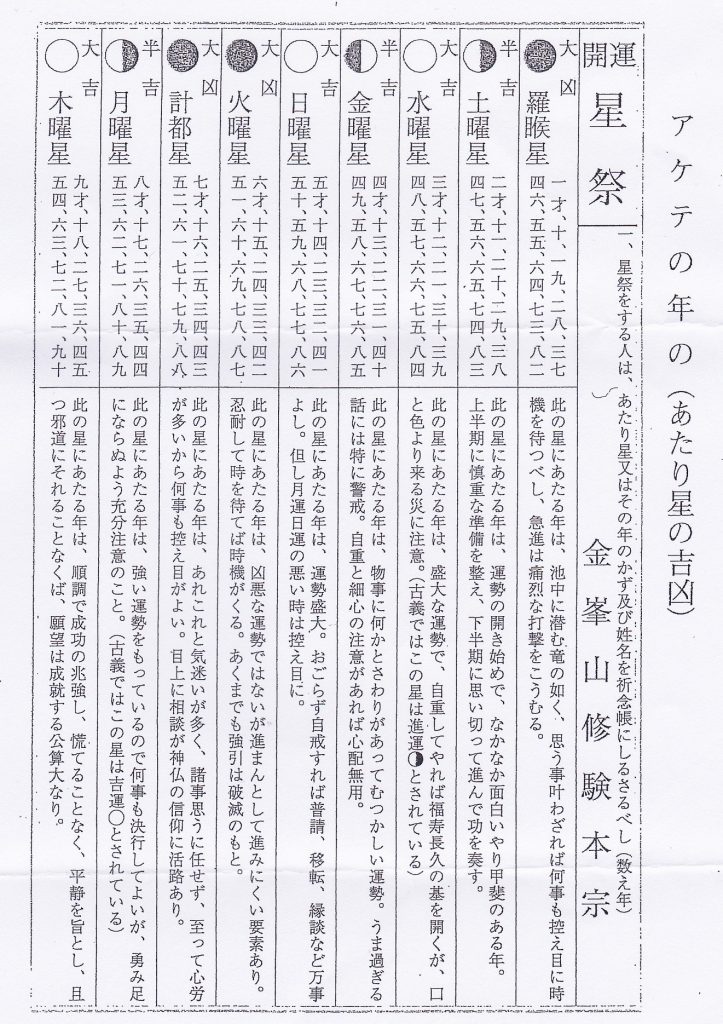 アケテの年の(あたり星の吉凶)
開運
星祭
一、星祭をする人は、あたり星又はその年のかず及び姓名を祈念帳にしるさるべし(数え年)
金峯山修験本宗
大凶
羅睺星
一才、十、一九、二八、三七
四六、五五、六四、七三、八二
此の星にあたる年は、池中に潜む竜の如く、思う事叶わざれば何事も控え目に時
機を待つべし、急進は痛烈な打撃をこうむる。
半吉
土曜星
二才、十一、二十、二九、三八
四七、五六、六五、七四、八三
此の星にあたる年は、運勢の開き始めで、なかなか面白いやり甲斐のある年。
上半期に慎重な準備を整え、下半期に思い切って進んで功を奏す。
大吉
水曜星
三才、十二、二一、三十、三九
四八、五七、六六、七五、八四
此の星にあたる年は、盛大な運勢で、自重してやれば福寿長久の基を開くが、口
と色より来る災に注意。(古義ではこの星は進運◑とされている)
半吉
金曜星
四才、十三、二二、三一、四十
四九、五八、六七、七六、八五
此の星にあたる年は、物事に何かとさわりがあってむつかしい運勢。うま過ぎる
話には特に警戒。自重と細心の注意があれば心配無用。
大吉
日曜星
五才、十四、二三、三二、四一
五十、五九、六八、七七、八六
此の星にあたる年は、運勢盛大。おごらず自戒すれば普請、移転、縁談など万事
よし。但し月運日運の悪い時は控え目に。
大凶
火曜星
六才、十五、二四、三三、四二
五一、六十、六九、七八、八七
此の星にあたる年は、凶悪な運勢ではないが進まんとして進みにくい要素あり。
忍耐して時を待てば時機がくる。あくまでも強引は破滅のもと。
大凶
計都星
七才、十六、二五、三四、四三
五二、六一、七十、七九、八八
此の星にあたる年は、あれこれと気迷いが多く、諸事思うに任せず、至って心労
が多いから何事も控え目がよい。目上に相談が神仏の信仰に活路あり。
半吉
月曜星
八才、十七、二六、三五、四四
五三、六二、七一、八十、八九
此の星にあたる年は、強い運勢をもっているので何事も決行してよいが、勇み足
にならぬよう充分注意のこと。(古義ではこの星は吉運〇とされている)
大吉
木曜星
九才、十八、二七、三六、四五
五四、六三、七二、八一、九十
此の星にあたる年は、順調で成功の兆強し、慌てることなく、平静を旨とし、且
つ邪道にそれることなくば、願望は成就する公算大なり。